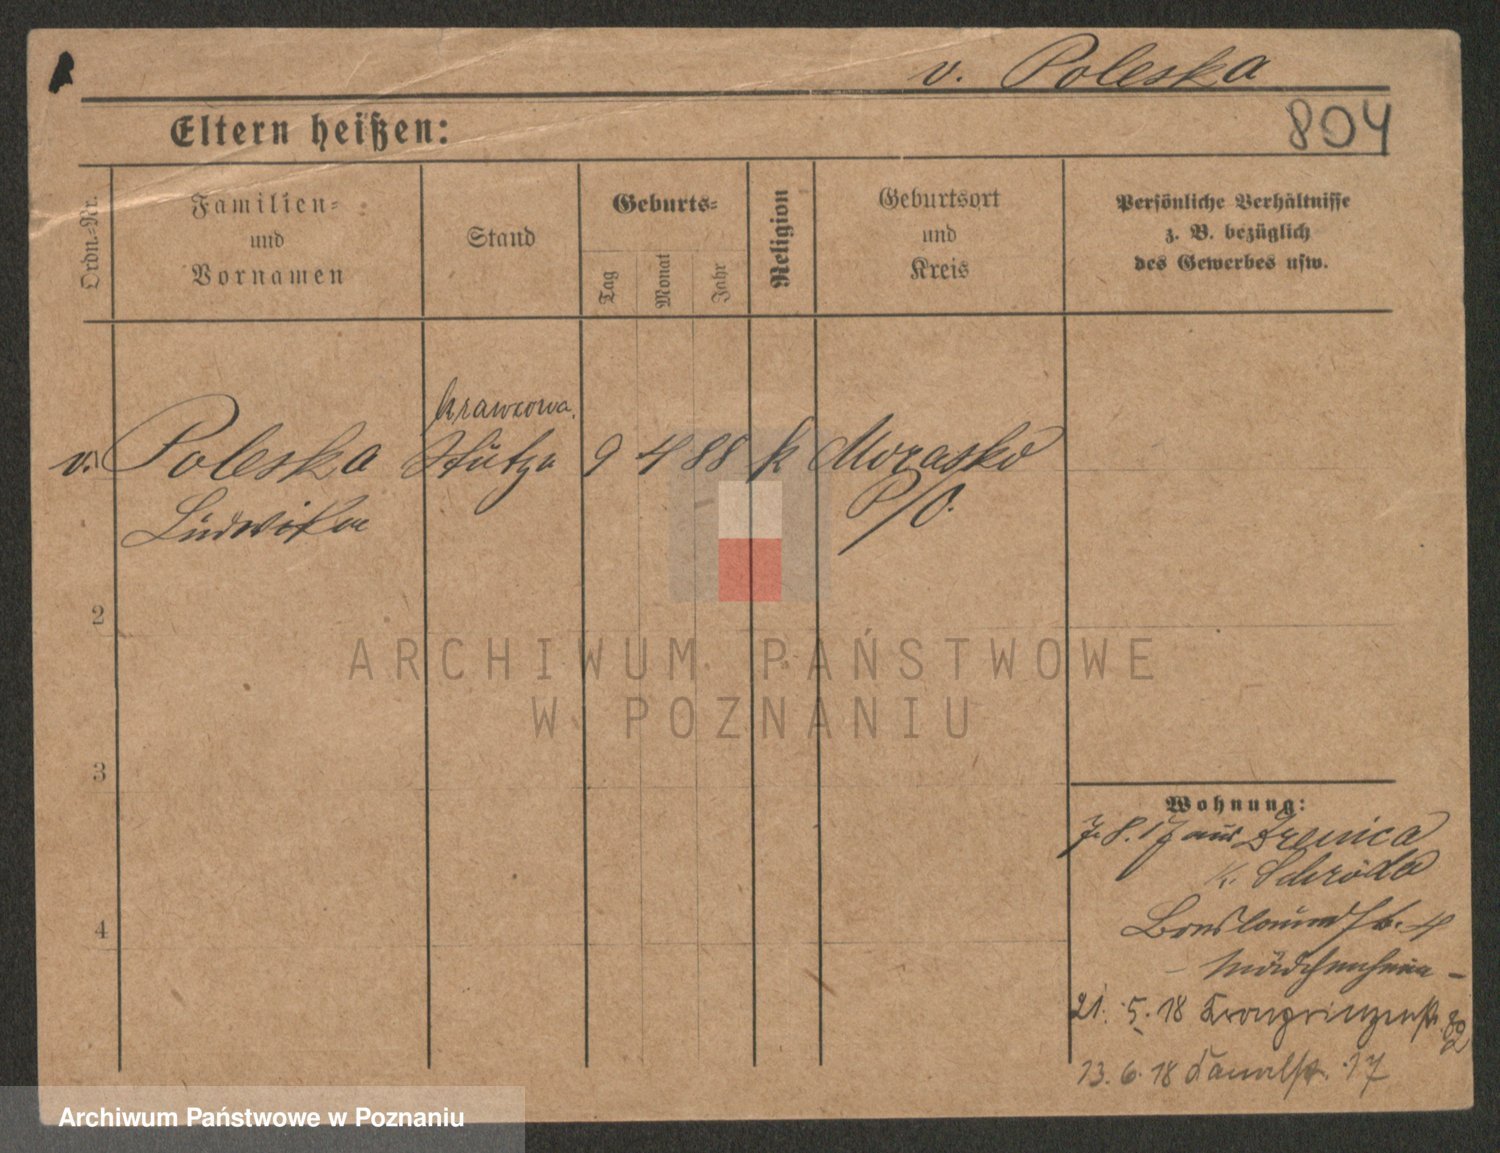 v. Poleska
Eltern heißen:
804
Ordn.-Nr.
Familien-
und
Vornamen
Stand
Geburts-
Tag
Monat
Jahr
Religion
Geburtsort
und
Kreis
Persönliche Verhältnisse
z. B. bezüglich
des Gewerbes usw.
krawcowa.
v. Poleska Stütze 9 4 88 k Morasko
Ludwika P/O.
2
3
4
Wohnung:
7.8.17 aus Drenica
K. Schroda
4
Mädchenheim
21. 5. 18 Kronprinzenst. 82
13. 6. 18 Kanalst. 17
ARCHIWUM PAŃSTWOWE
W POZNANIU
Archiwum Państwowe w Poznaniu